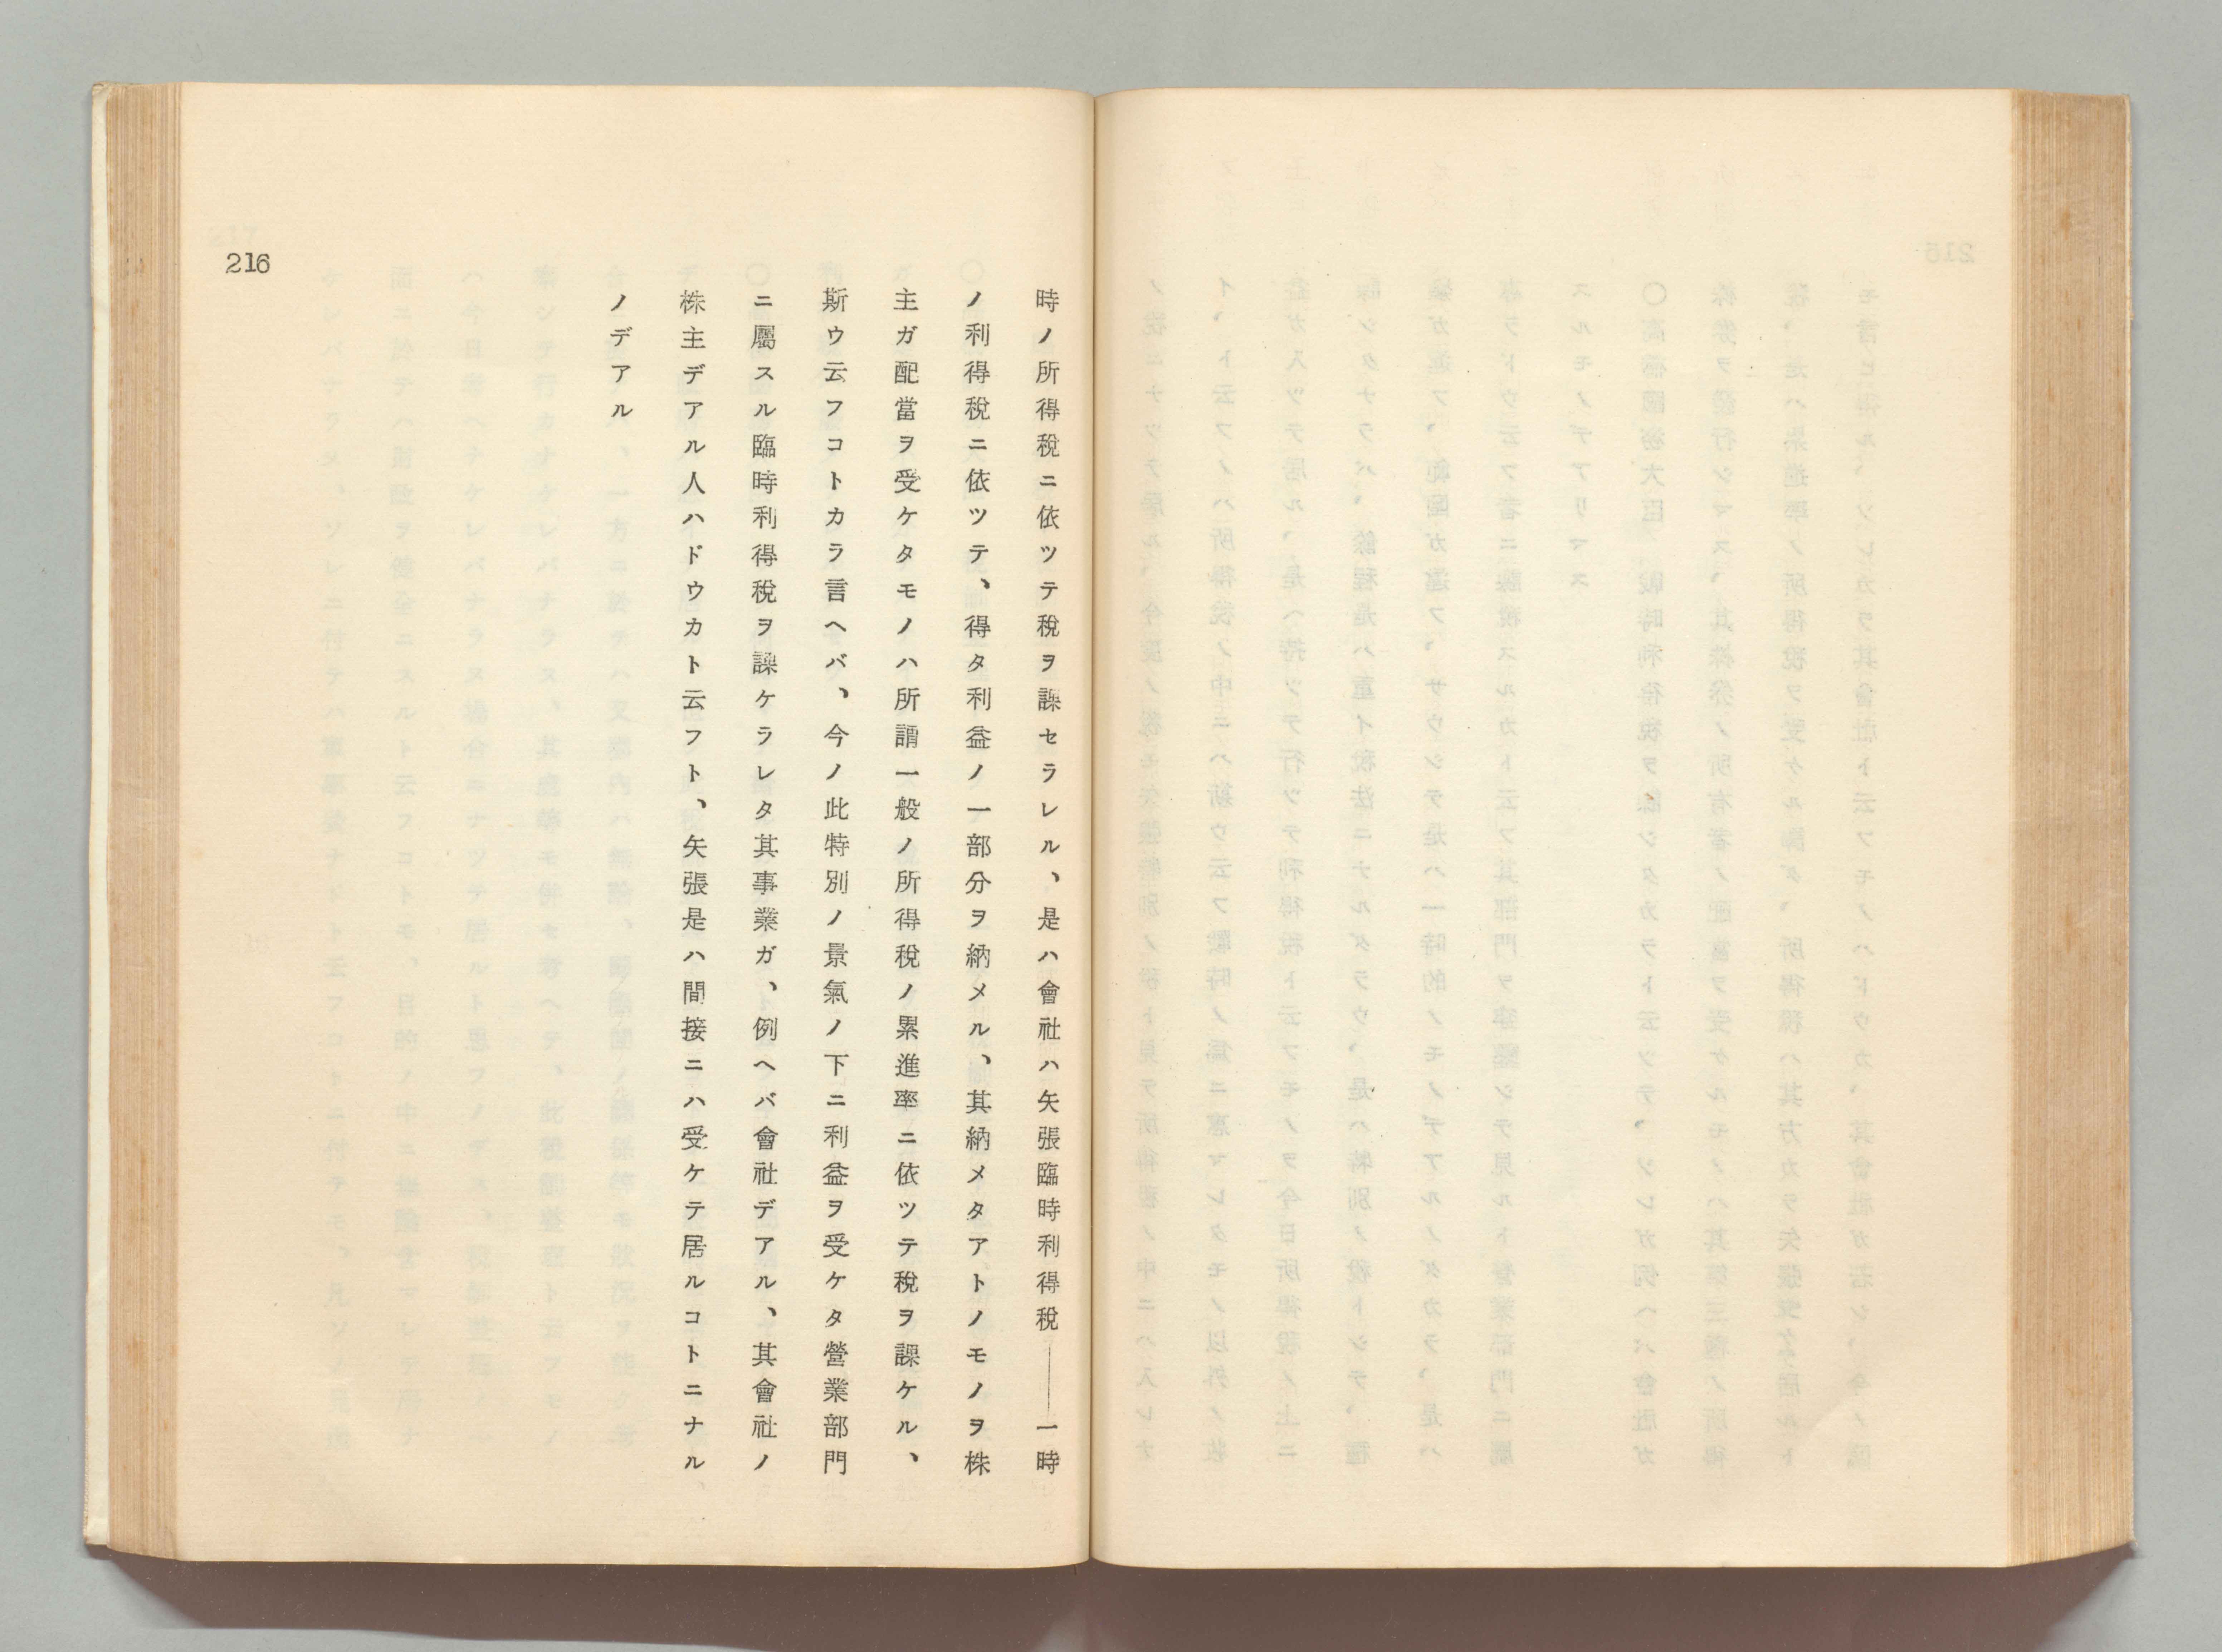 216
時ノ所得稅ニ依ツテ稅ヲ課セラレル、是ハ會社ハ矢張臨時利得稅――一時
ノ利得稅ニ依ツテ、得タ利益ノ一部分ヲ納メル、其納メタアトノモノヲ株
主ガ配當ヲ受ケタモノハ所謂一般ノ所得稅ノ累進率ニ依ツテ稅ヲ課ケル、
斯ウ云フコトカラ言ヘバ、今ノ此特別ノ景氣ノ下ニ利益ヲ受ケタ營業部門
ニ屬スル臨時利得稅ヲ課ケラレタ其事業ガ、例ヘバ會社デアル、其會社ノ
株主デアル人ハドウカト云フト、矢張是ハ間接ニハ受ケテ居ルコトニナル、
ノデアル